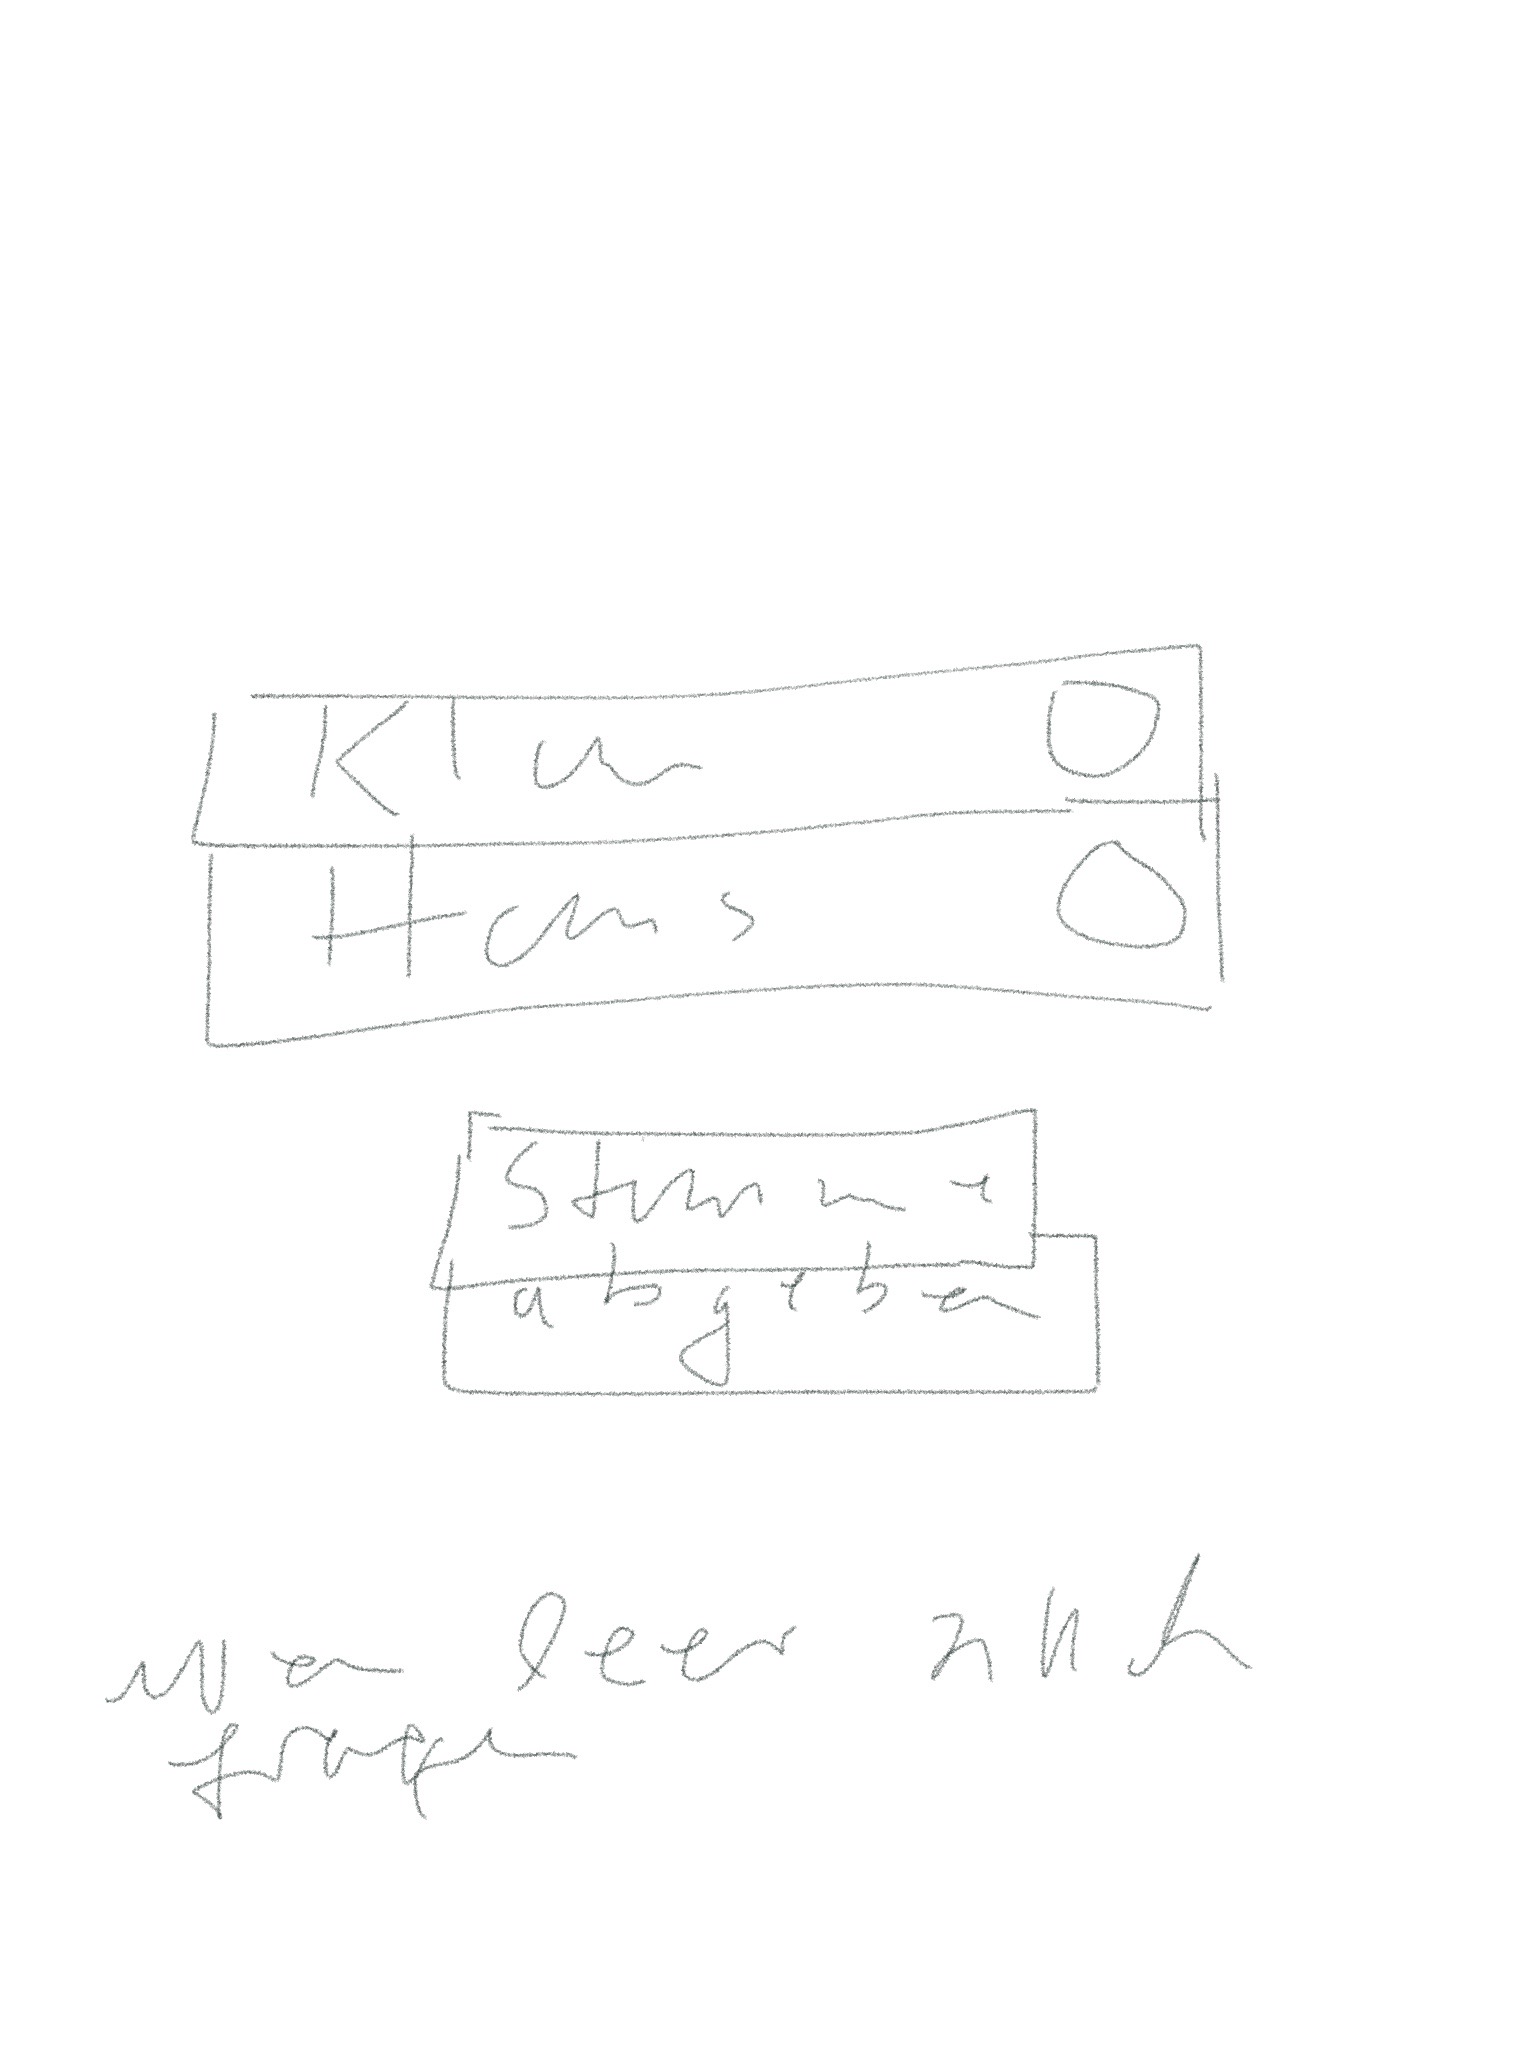 Klau
Hans
Stimme
abgeben
Wen leer nach
fragen